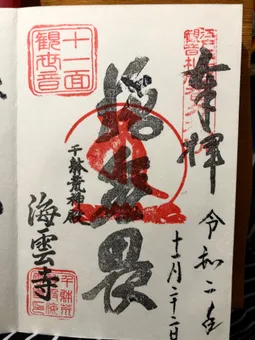 奉拝
令和二年
十一月二十二日
施無畏
十一面
観世音
千躰荒神殿
海雲寺